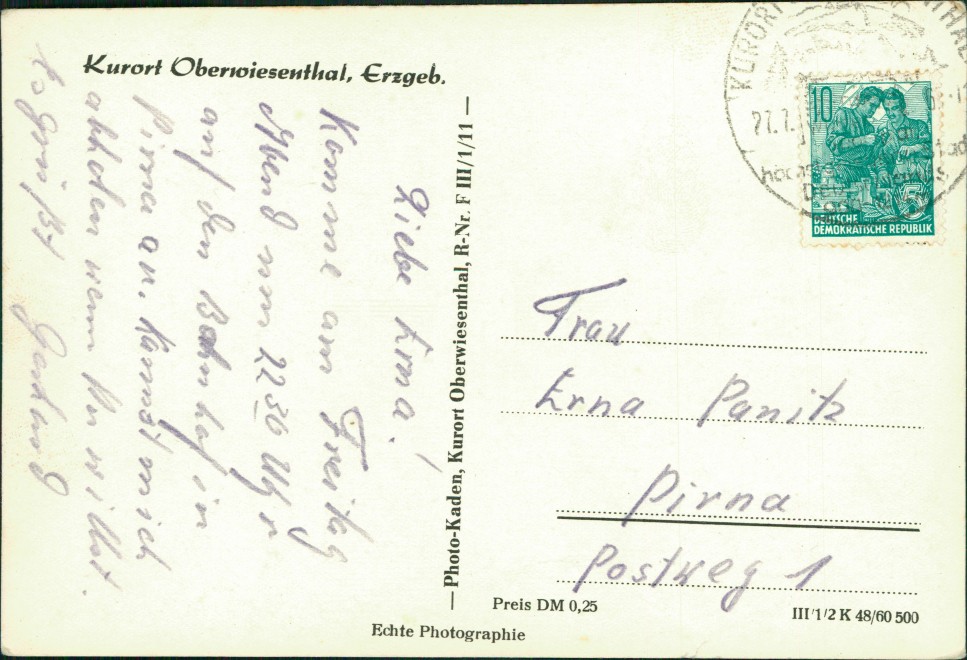 Kurort Oberwiesenthal, Erzgeb.
Liebe Erna!
Komme am Freitag
Abend um 22 36 Uhr
auf den Bahnhof in
Pirna an. Kannst mich
abholen wenn Du willst.
Es grüßt Gerhard
Photo-Kaden, Kurort Oberwiesenthal, R-Nr. F III/1/11
KURORT
10
5
DEUTSCHE
DEMOKRATISCHE REPUBLIK
Frau
Erna Panitz
Pirna
Postweg 1
Preis DM 0,25
III/1/2 K 48/60 500
Echte Photographie